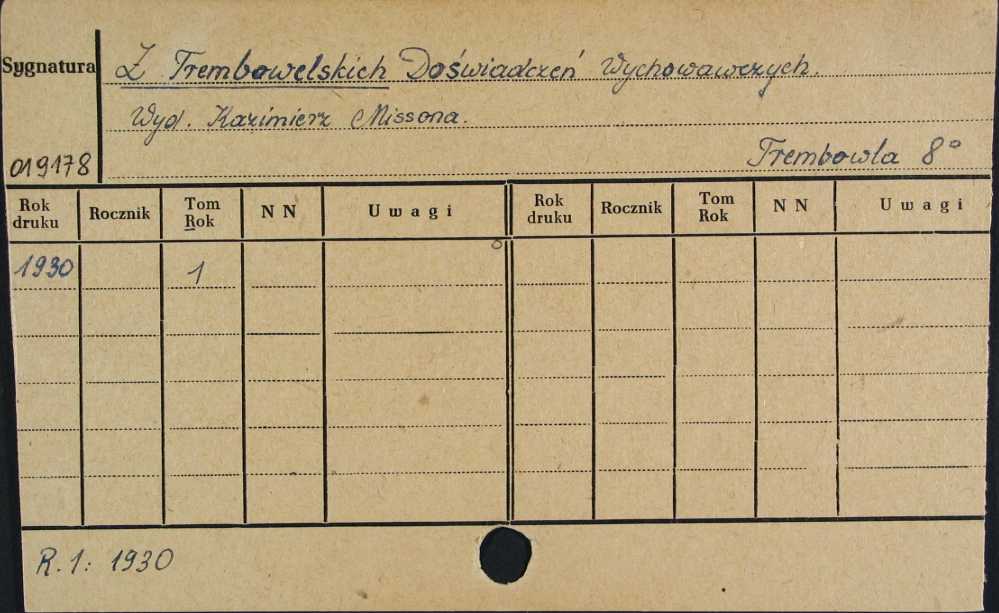 Sygnatura
Z Trembowelskich Doświadczeń Wychowawczych.
Wyd. Kazimierz Missona.
Trembowla 8°
019178
Rok druku Rocznik Tom Rok N N Uwagi Rok druku Rocznik Tom Rok N N Uwagi
1930 1
R. 1: 1930